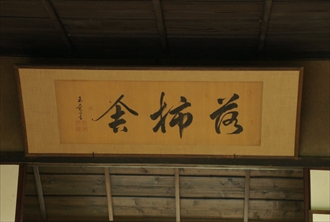 落柿舎